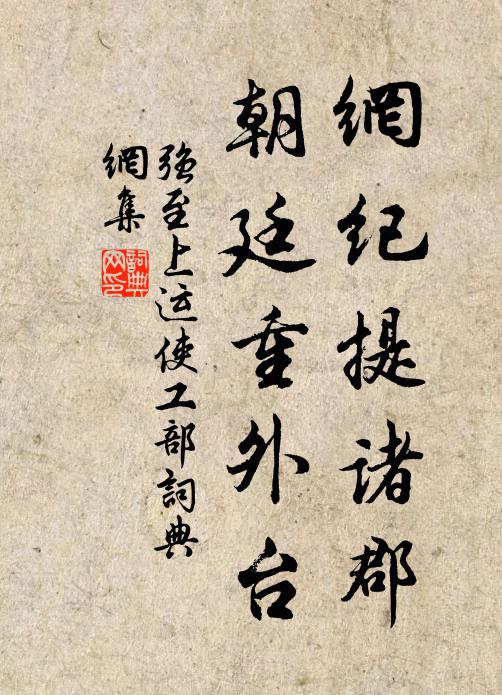 網紀提诸郡
朝廷重外台
强至上运使工部詞典
網集
詞典
网印